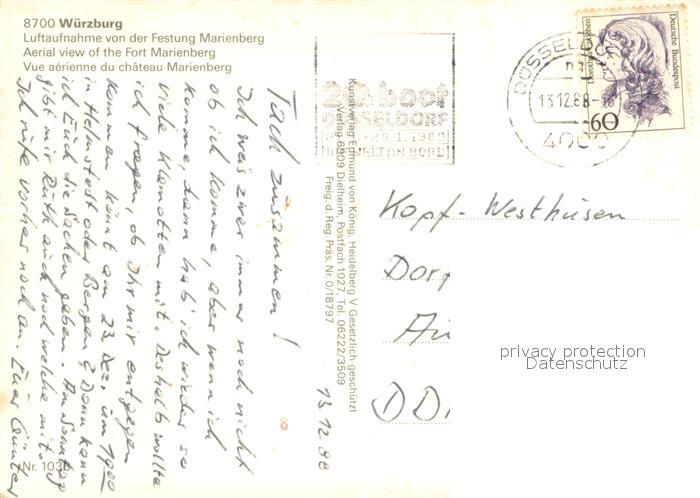 8700 Würzburg
Luftaufnahme von der Festung Marienberg
Aerial view of the Fort Marienberg
Vue aérienne du château Marienberg
Tach zusammen!
Ich weis zwar immer noch nicht
ob ich komme, aber wenn ich
komme, dann hab ich wieder so
viele Klamotten mit. Deshalb wollte
ich fragen, ob Ihr mir entgegen
kommen könnt am 23. Dez. um 1900
in Helmstedt oder Bergen? Dann kann
ich Euch die Sachen geben. Am Sonntag
gibt mir Ruth auch noch welche mit.
Ich rufe vorher noch an. Euer Günter
13 12 88
Nr. 1030
Kunstverlag Edmund von König, Heidelberg V Gesetzlich geschützt
Verlag 6909 Dielheim, Postfach 1027, Tel. 06222/3509
Freig. d. Reg. Präs. Nr. 0/18797
boot
DÜSSELDORF
29.1.1989
AN BORD
DÜSSELDO
13.12.88-16
4000
Deutsche Bundespost
60
Kopf-Westhusen
Dorf
DD
privacy protection
Datenschutz